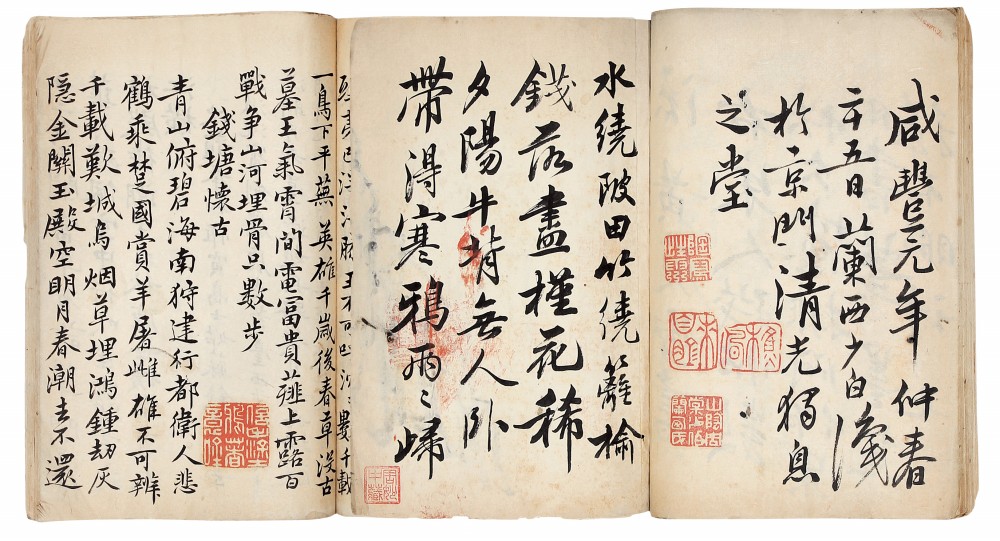 咸豐元年仲春
二十五日蘭西少白識
於京門清光獨息
之堂
水繞陂田竹繞籬榆
錢落盡槿花稀
夕陽牛背無人卧
帶得寒鴉兩〻歸
一鳥下平蕪英雄千歲後春草沒古
墓王氣霄間電富貴薤上露百
戰爭山河埋骨只數步
錢塘懷古
青山俯碧海南狩建行都偉人悲
鶴乘楚國賞羊屠雌雄不可辨
千載歎城烏烟草埋鴻鍾劫灰
隐金關玉殿空明月春潮去不還